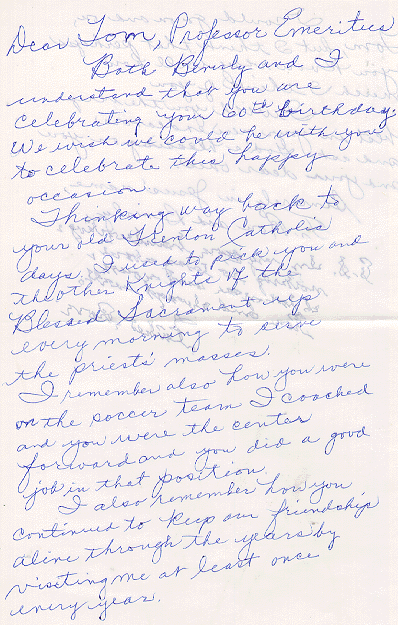 Dear Tom, Professor Emeritus
Both Beverly and I
understand that you are
celebrating your 60th birthday.
We wish we could be with you
to celebrate this happy
occasion.
Thinking way back to
your old Trenton Catholic
days. I used to pick you and
the other Knights of the
Blessed Sacrament up
every morning to serve
the priests' masses.
I remember also how you were
on the soccer team I coached
and you were the center
forward and you did a good
job in that position.
I also remember how you
continued to keep our friendship
alive through the years by
visiting me at least once
every year.